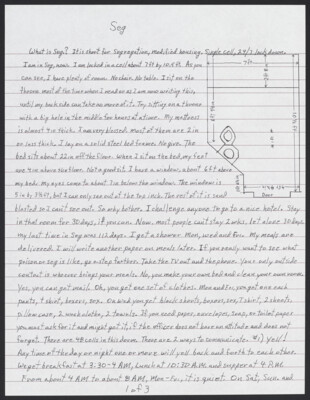 Seg
What is Seg? It is short for Segregation, modified housing, single cell, 24/7 lock down.
I am in Seg, now. I am locked in a cell about 7ft by 10.5 ft. As you
can see, I have plenty of room. No chair. No table. I sit on the
throne most of the time when I read or as I am now writing this,
until my back side can take no more of it. Try sitting on a throne
with a big hole in the middle for hours at a time. My mattress
is almost 4 in thick. I am very blessed. Most of them are 2 in
or less thick. I lay on a solid steel bed frame. No give. The
bed sits about 22 in off the floor. When I sit on the bed, my feet
are 4 in above the floor. Not a good sit. I have a window, about 6 ft above
my bed. My eyes come to about 1 in below the window. The window is
5 in by 5 ft, but I can only see out of the top inch. The rest of it is sand
blasted so I can't see out. So why bother. I challenge anyone to go to a nice hotel. Stay
in that room for 30 days, if you can. Now. Most people can't stay 2 wks, let alone 30 days.
My last time in Seg was 112 days. I get a shower Mon, Wed and Fri. My meals are
delivered. I will write another paper on meals later. If you really want to see what
prison or seg is like, go a step further. Take the TV out and the phone. Your only outside
contact is whoever brings your meals. No, you make your own bed and clean your own room.
Yes, you can get mail. Oh, you get one set of clothes. Mon and Fri, you get one each
pants, t shirt, boxers, sox. On Wed you get blanket, sheets, boxers, sox, t shirt, 2 sheets,
pillow case, 2 wash cloths, 2 towels. If you need paper, envelopes, soap, or toilet paper
you must ask for it and might get it, if the officer does not have an attitude and does not
forget. There are 48 cells in this dorm. There are 2 ways to communicate. #1) Yell!
Any time of the day or night one or more will yell back and forth to each other.
We get breakfast at 3:30-4 AM, Lunch at 10:30 AM and supper at 4 PM.
From about 4 AM to about 8 AM, Mon-Fri, it is quiet. On Sat, Sun, and
1 of 3
7 ft
Door